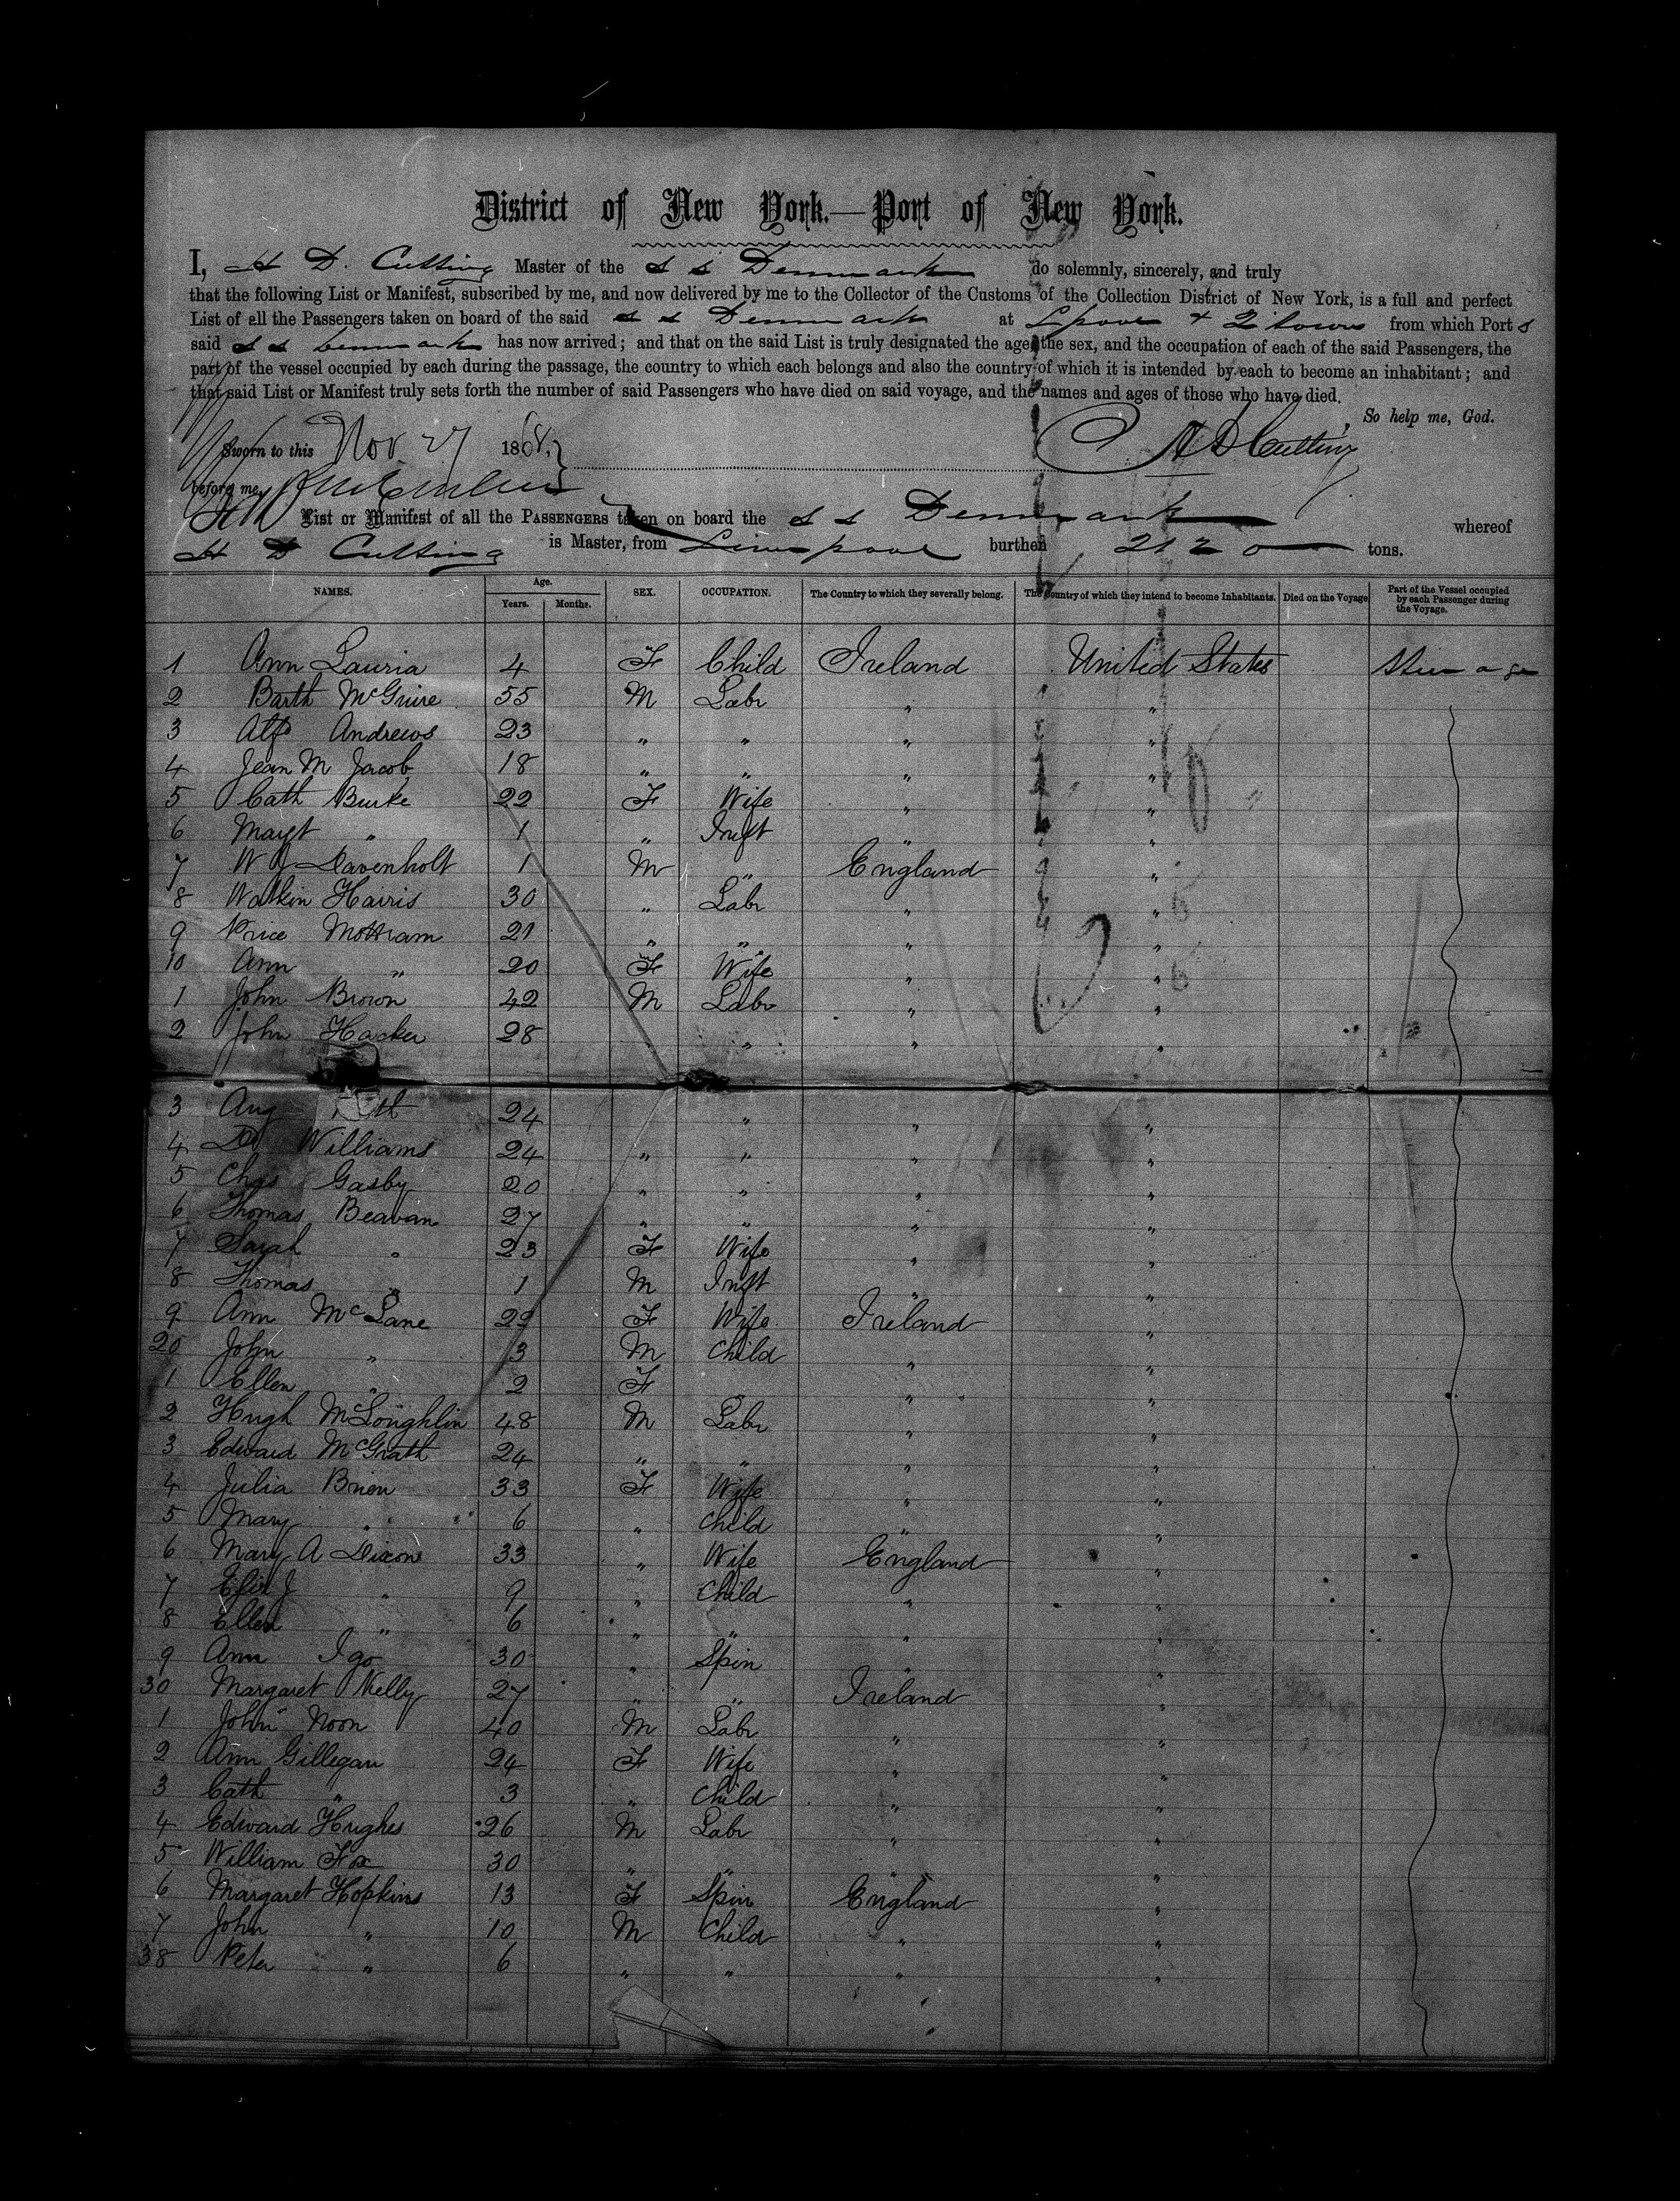 District of New York.—Port of New York.
I, H D. Cutting Master of the S S Denmark do solemnly, sincerely, and truly
that the following List or Manifest, subscribed by me, and now delivered by me to the Collector of the Customs of the Collection District of New York, is a full and perfect
List of all the Passengers taken on board of the said S S Denmark at Lpool + Qtown from which Ports
said S S Denmark has now arrived; and that on the said List is truly designated the age, the sex, and the occupation of each of the said Passengers, the
part of the vessel occupied by each during the passage, the country to which each belongs and also the country of which it is intended by each to become an inhabitant; and
that said List or Manifest truly sets forth the number of said Passengers who have died on said voyage, and the names and ages of those who have died.
So help me, God.
Sworn to this Nov. 27 1868, H D Cutting
before me,
List or Manifest of all the PASSENGERS taken on board the S S Denmark whereof
H D Cutting is Master, from Liverpool burthen 2120 tons.
NAMES. Age. Years. Months. SEX. OCCUPATION. The Country to which they severally belong. The Country of which they intend to become Inhabitants. Died on the Voyage Part of the Vessel occupied by each Passenger during the Voyage.
1 Ann Lauria 4 F Child Ireland United States Steerage
2 Barth McGuire 55 M Labr " "
3 Alf Andrews 23 " " " "
4 Jean M Jacob 18 " " " "
5 Cath Burke 22 F Wife " "
6 Margt " 1 " Inft " "
7 W Davenholt 1 M " England "
8 Watkin Harris 30 " Labr " "
9 Price Mottram 21 " " " "
10 Ann " 20 F Wife " "
1 John Brown 42 M Labr " "
2 John Hacker 28 " " "
3 Aug 24 " " "
4 Williams 24 " " " "
5 Chas Gasby 20 " " " "
6 Thomas Beavan 27 " " " "
7 Sarah " 23 F Wife " "
8 Thomas " 1 M Inft " "
9 Ann McLane 29 F Wife Ireland "
20 John " 3 M Child " "
1 Ellen " 2 F " " "
2 Hugh McLoughlin 48 M Labr " "
3 Edward McGrath 24 " " " "
4 Julia Brien 33 F Wife " "
5 Mary " 6 " Child " "
6 Mary A Dixon 33 " Wife England "
7 J " 9 " Child " "
8 Ellen " 6 " " " "
9 Ann Igo 30 " Spin " "
30 Margaret Kelly 27 " " Ireland "
1 John Noon 40 M Labr " "
2 Ann Gillegan 24 F Wife " "
3 Cath " 3 " Child " "
4 Edward Hughes 26 M Labr " "
5 William Fox 30 " " " "
6 Margaret Hopkins 13 F Spin England "
7 John " 10 M Child " "
38 Peter " 6 " " " "